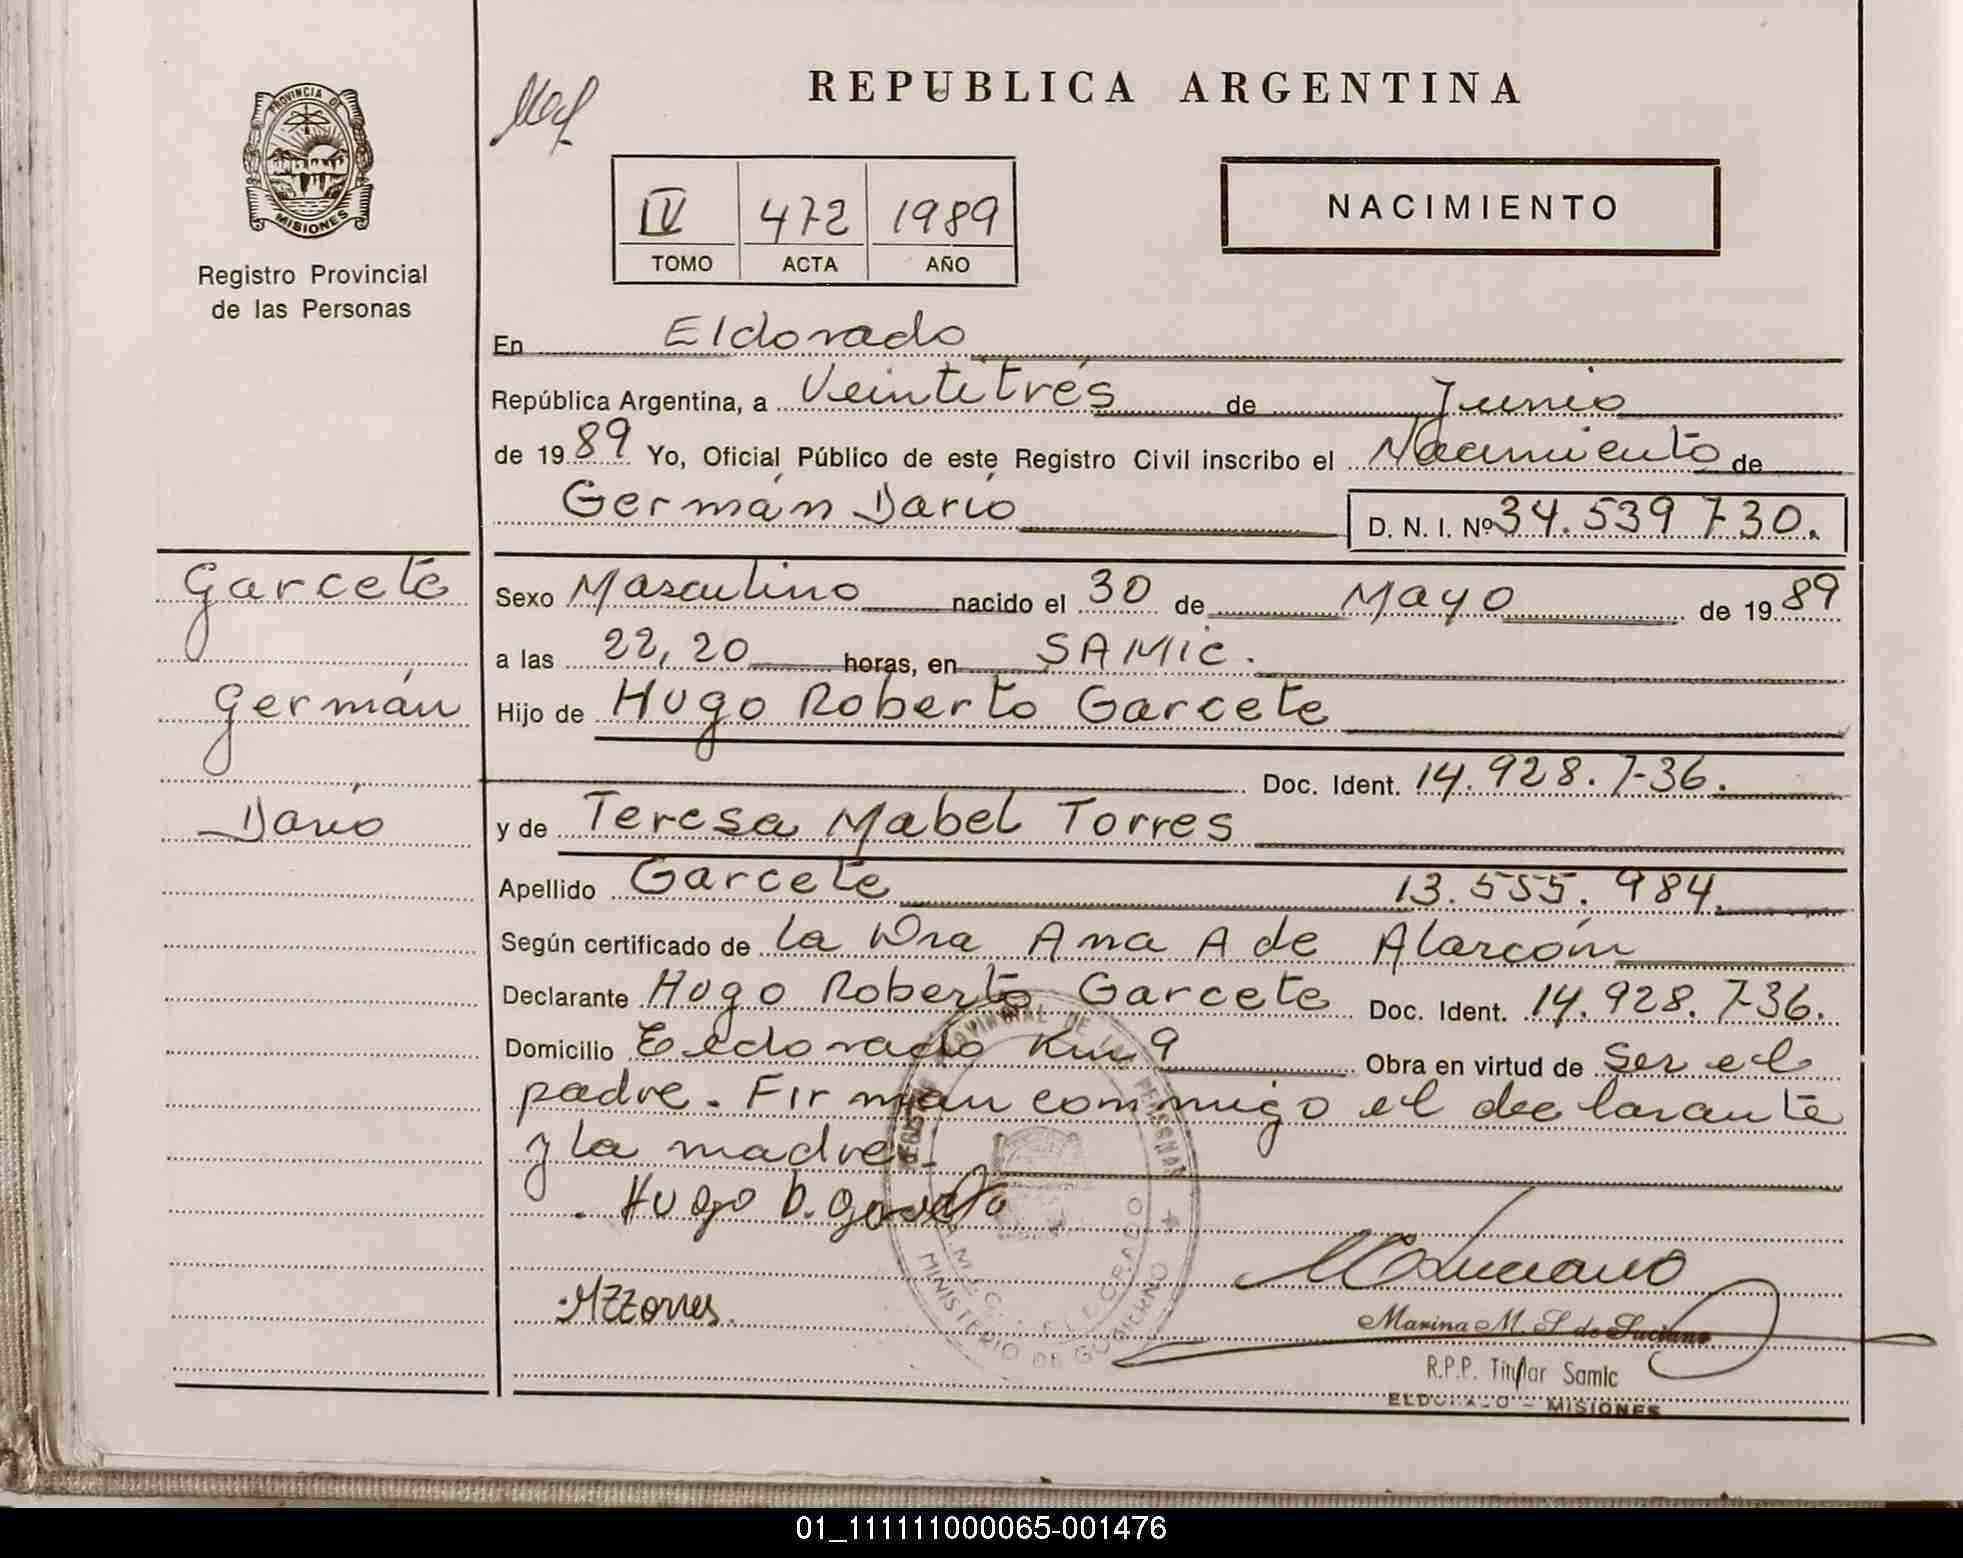 REPUBLICA ARGENTINA
PROVINCIA DE
MISIONES
Registro Provincial
de las Personas
IV 472 1989
TOMO ACTA AÑO
NACIMIENTO
En Eldorado
República Argentina, a Veintitrés de Junio
de 1989 Yo, Oficial Público de este Registro Civil inscribo el Nacimiento de
Germán Darío D. N. I. Nº 34.539 730.
Garcete
Germán
Darío
Sexo Masculino nacido el 30 de Mayo de 1989
a las 22,20 horas, en SAMIC.
Hijo de Hugo Roberto Garcete
Doc. Ident. 14.928.736.
y de Teresa Mabel Torres
Apellido Garcete 13.555.984.
Según certificado de la Dra Ana A de Alarcón
Declarante Hugo Roberto Garcete Doc. Ident. 14.928.736.
Domicilio Eldorado Km 9 Obra en virtud de ser el
padre. Firman conmigo el declarante
y la madre.
Marina M. S. de Luciano
R.P.P. Titular Samic
ELDORADO - MISIONES
MINISTERIO DE GOBIERNO
01_111111000065-001476